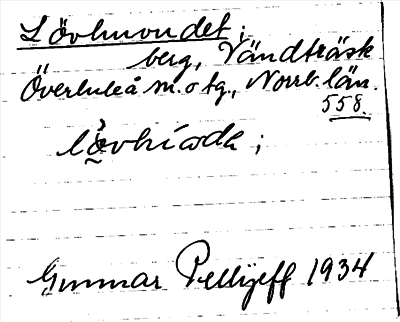 Lövhuvudet;
berg, Vändträsk
Överluleå m. o tg., Norrb. län.
558.
Gunnar Pellijeff 1934